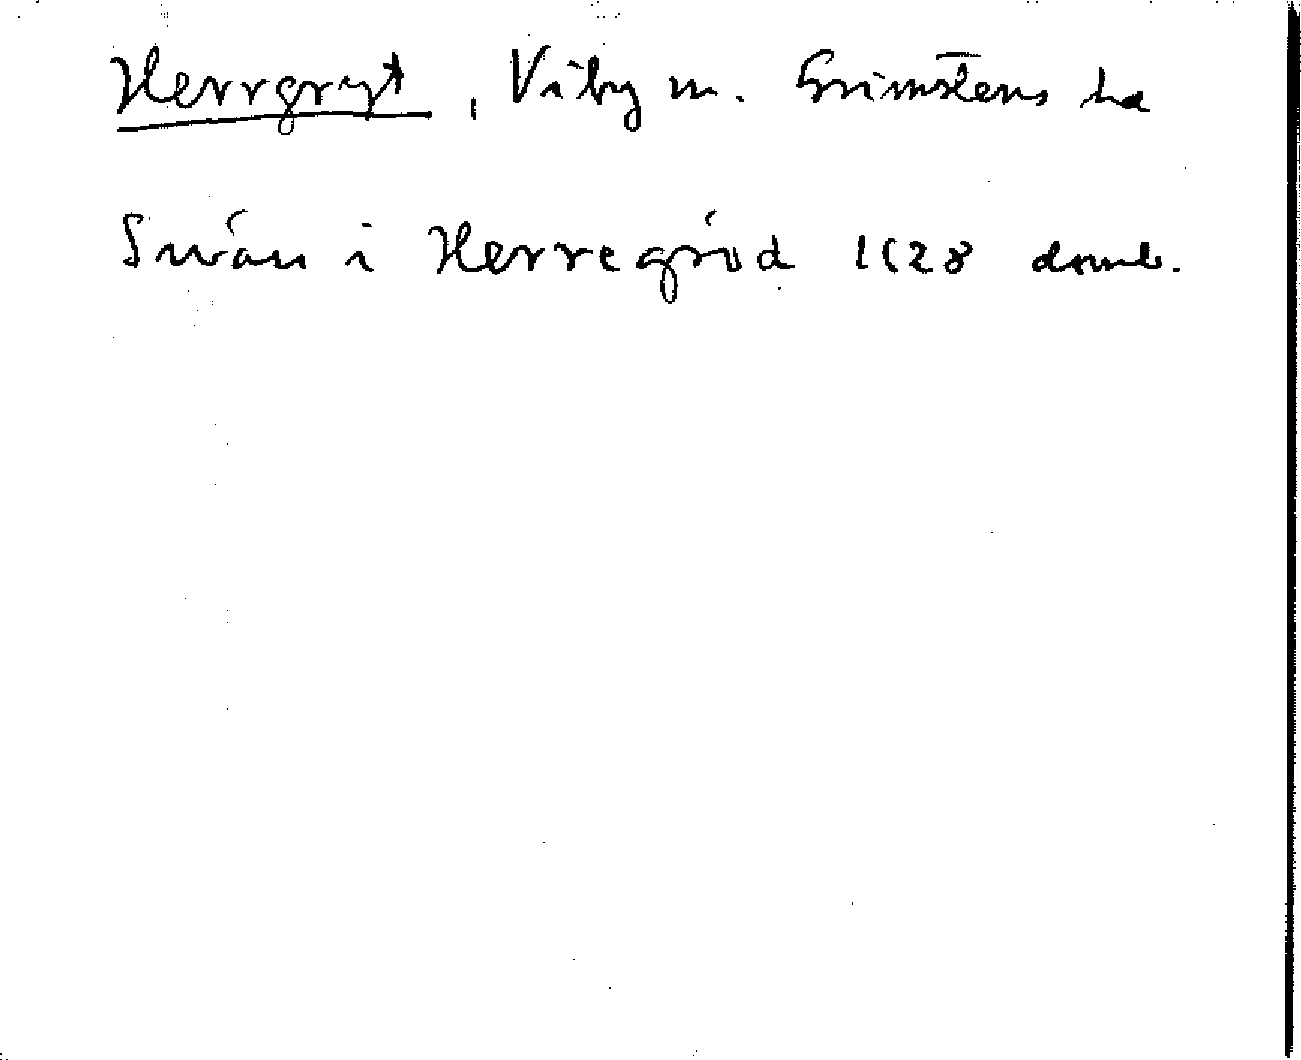 Herrgryt, Viby sn. Grimstens hd
Swän i Herregröd 1628 domb.